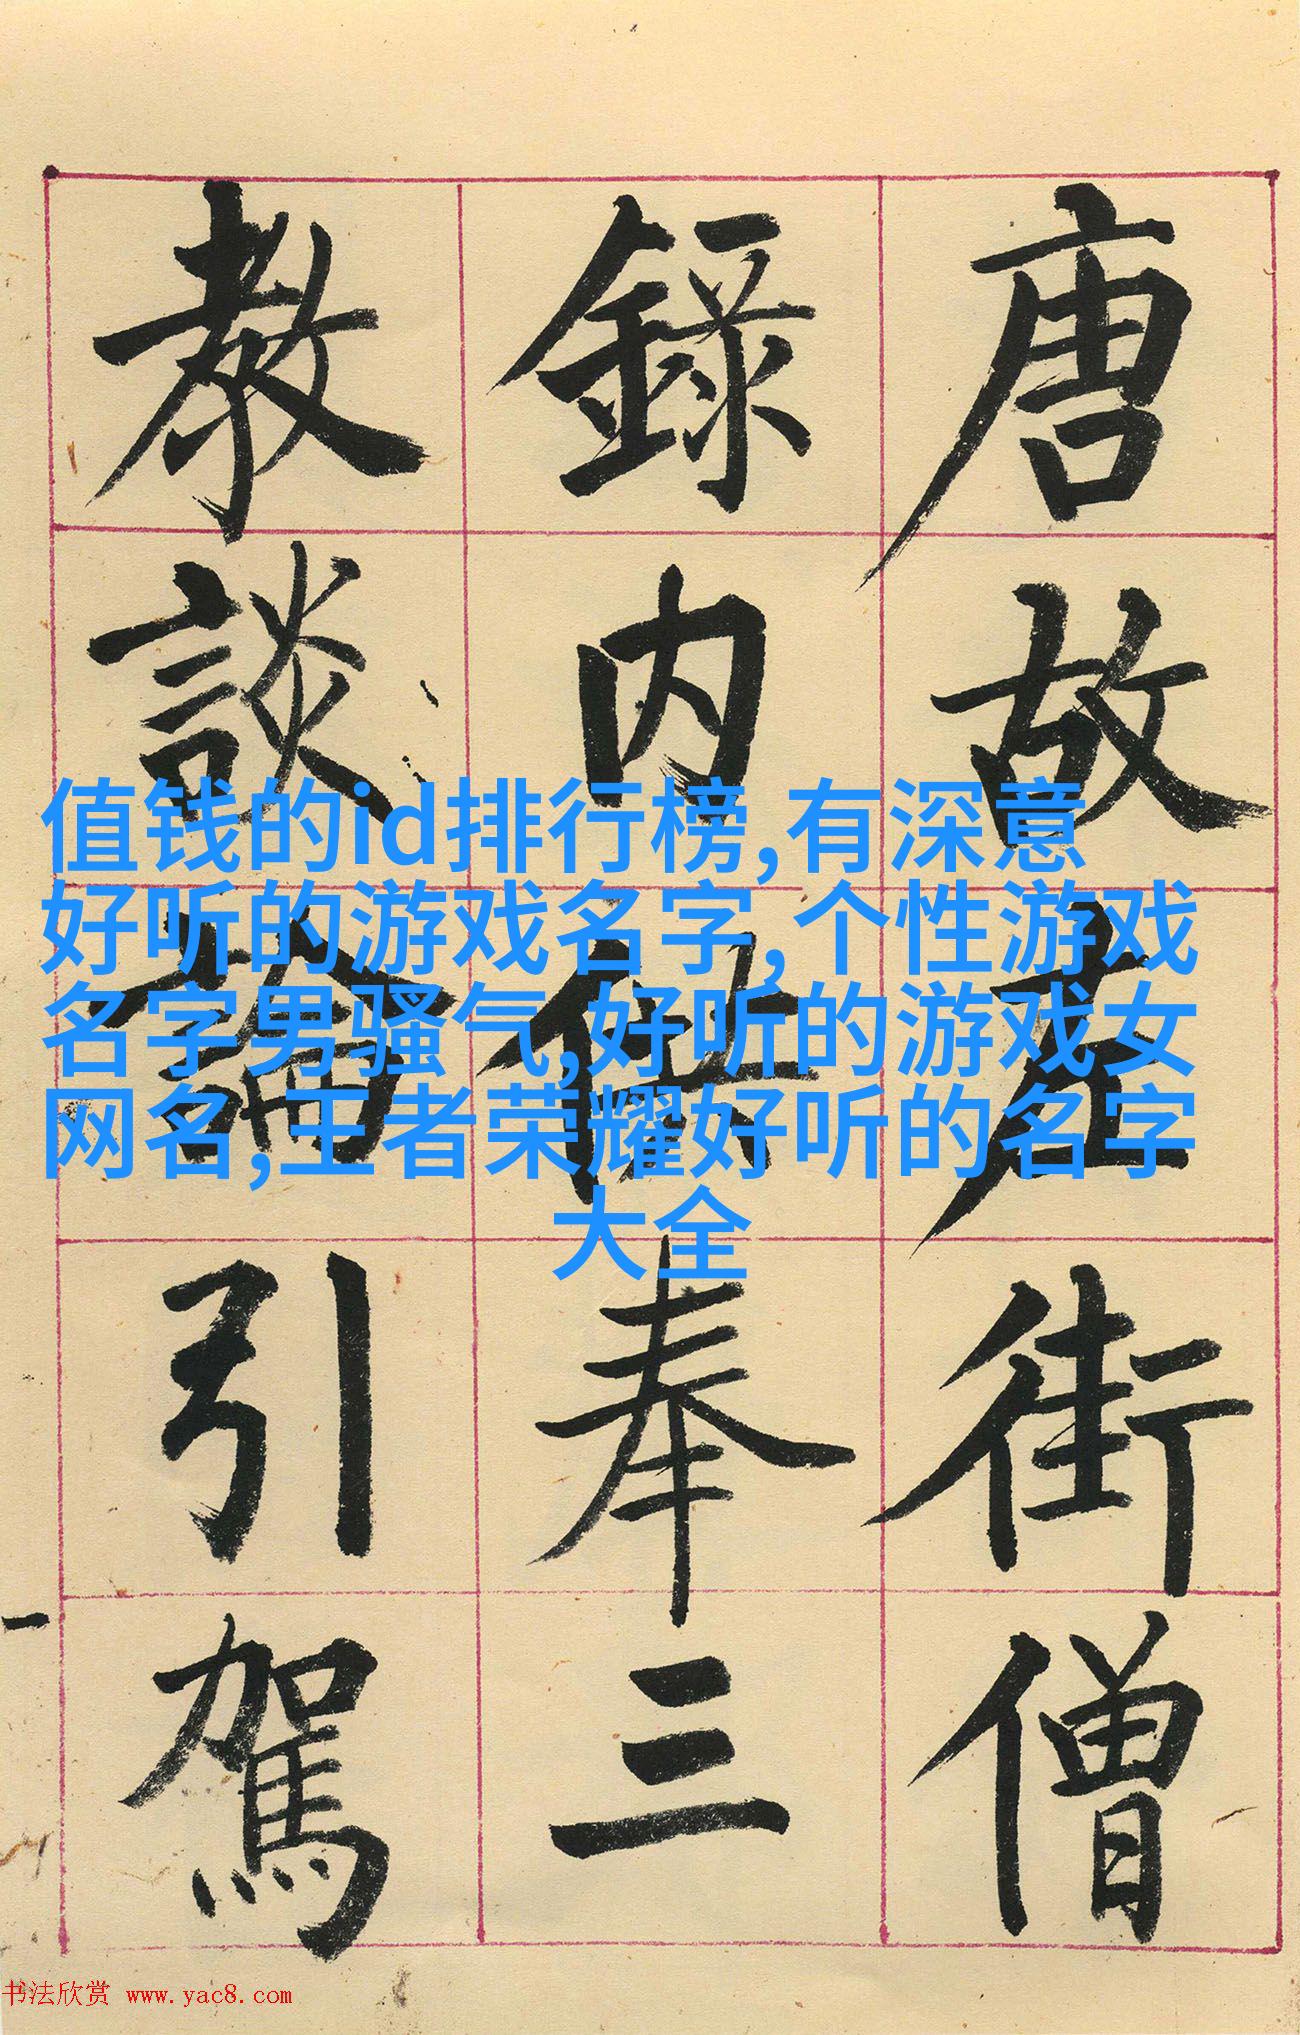 唐故左街僧
錄内供奉三
教談論引駕
值钱的id排行榜,有深意
好听的游戏名字,个性游戏
名字男骚气,好听的游戏女
网名,王者荣耀好听的名字
大全
书法欣赏 www.yac8.com